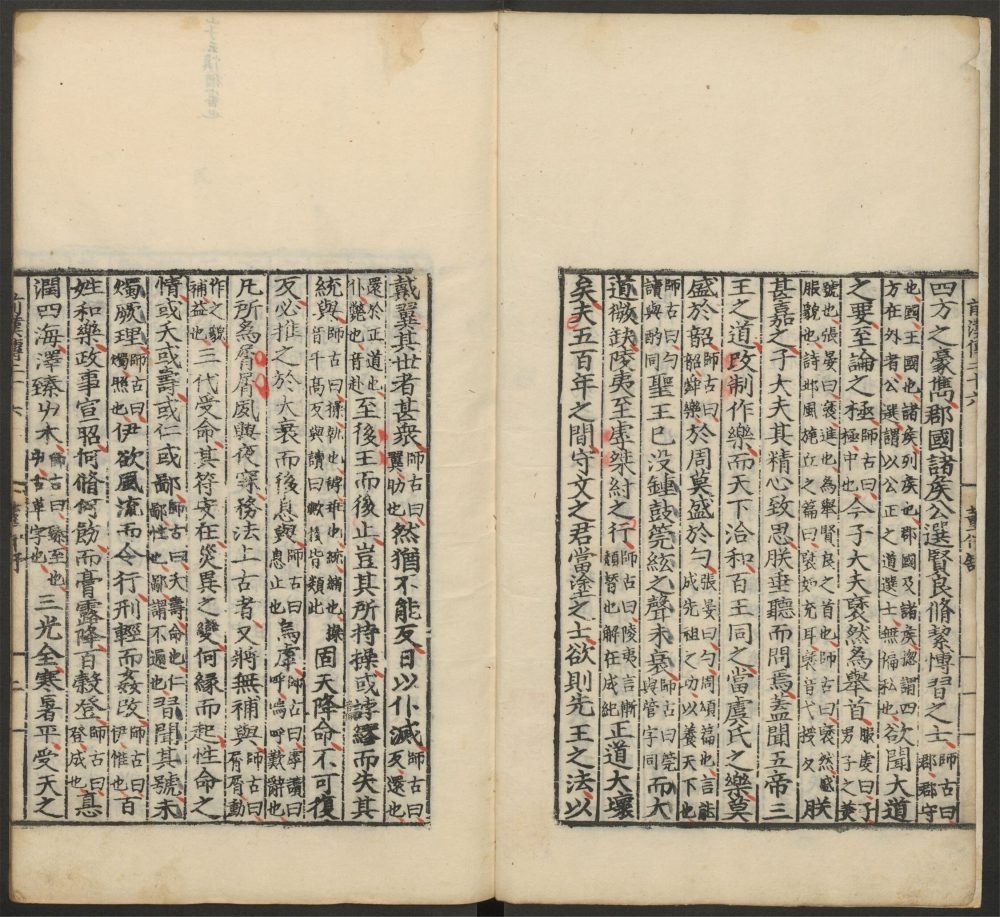 前漢傳二十六
四方之豪儁郡國諸矦公選賢良脩絜博習之士師古曰郡郡守
也國王國也諸矦列矦也郡國及諸矦摠謂四方在外者公選謂以公正之道選士無偏私也欲聞大道
之要至論之極師古曰極中也今子大夫裦然為舉首服虔曰子男子之美
號也張晏曰裦進也為舉賢良之首也師古曰裦然盛服貌也詩邶風旄丘之篇曰裦如充耳裦音代授反朕
甚嘉之子大夫其精心致思朕垂聽而問焉蓋聞五帝三
王之道改制作樂而天下洽和百王同之當虞氏之樂莫
盛於韶師古曰韶舜樂於周莫盛於勺張晏曰勺周頌篇也言能成先祖之功以養天下也
師古曰勺讀與酌同聖王已没鍾鼓筦絃之聲未衰師古曰筦與管字同而大
道微缺陵夷至虖桀紂之行師古曰陵夷言漸頹替也解在成紀正道大壞
矣夫五百年之間守文之君當塗之士欲則先王之法以
戴翼其世者甚衆師古曰翼助也然猶不能反日以仆滅師古曰反還也
還於正道也仆斃也音赴至後王而後止豈其所持操或誖繆而失其
統與師古曰操執也誖乖也統緒也操音千高反與讀曰歟後皆類此固天降命不可復
反必推之於大衰而後息與師古曰息止也烏虖師古曰虖讀曰呼嗚呼歎辭也
凡所為屑屑夙興夜寐務法上古者又將無補與師古曰屑屑動
作之貌補益也三代受命其符安在災異之變何緣而起性命之
情或夭或壽或仁或鄙師古曰夭壽命也仁鄙性也鄙謂不通也習聞其號未
燭厥理師古曰燭照也伊欲風流而令行刑輕而姦改師古曰伊惟也百
姓和樂政事宣昭何脩何飭而膏露降百穀登師古曰登成也悳
潤四海澤臻屮木師古曰臻至也屮古草字也三光全寒暑平受天之